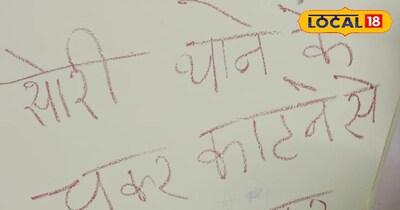 LOCAL 18
सोरी थाने के
चकर काटने से